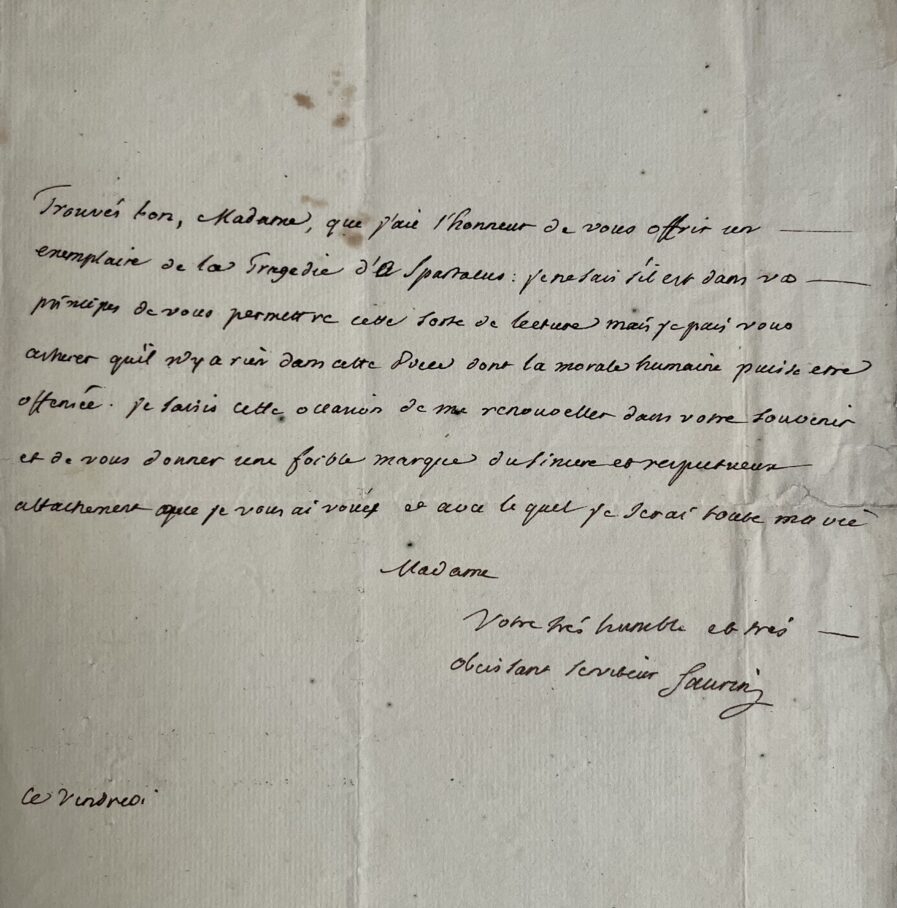 Trouvés bon, Madame, que j'aie l'honneur de vous offrir un
exemplaire de la Tragedie de Spartacus : je ne sais s'il est dans vos
principes de vous permettre cette sorte de lecture mais je puis vous
assurer qu'il n'y a rien dans cette Piece dont la morale humaine puisse etre
offensée. je saisis cette occasion de me renouveller dans votre souvenir
et de vous donner une foible marque du sincere et respectueux
attachement que je vous ai voué et avec le quel je serai toute ma vie
Madame
Votre très humble et très
obeissant serviteur Saurin
Ce vendredi